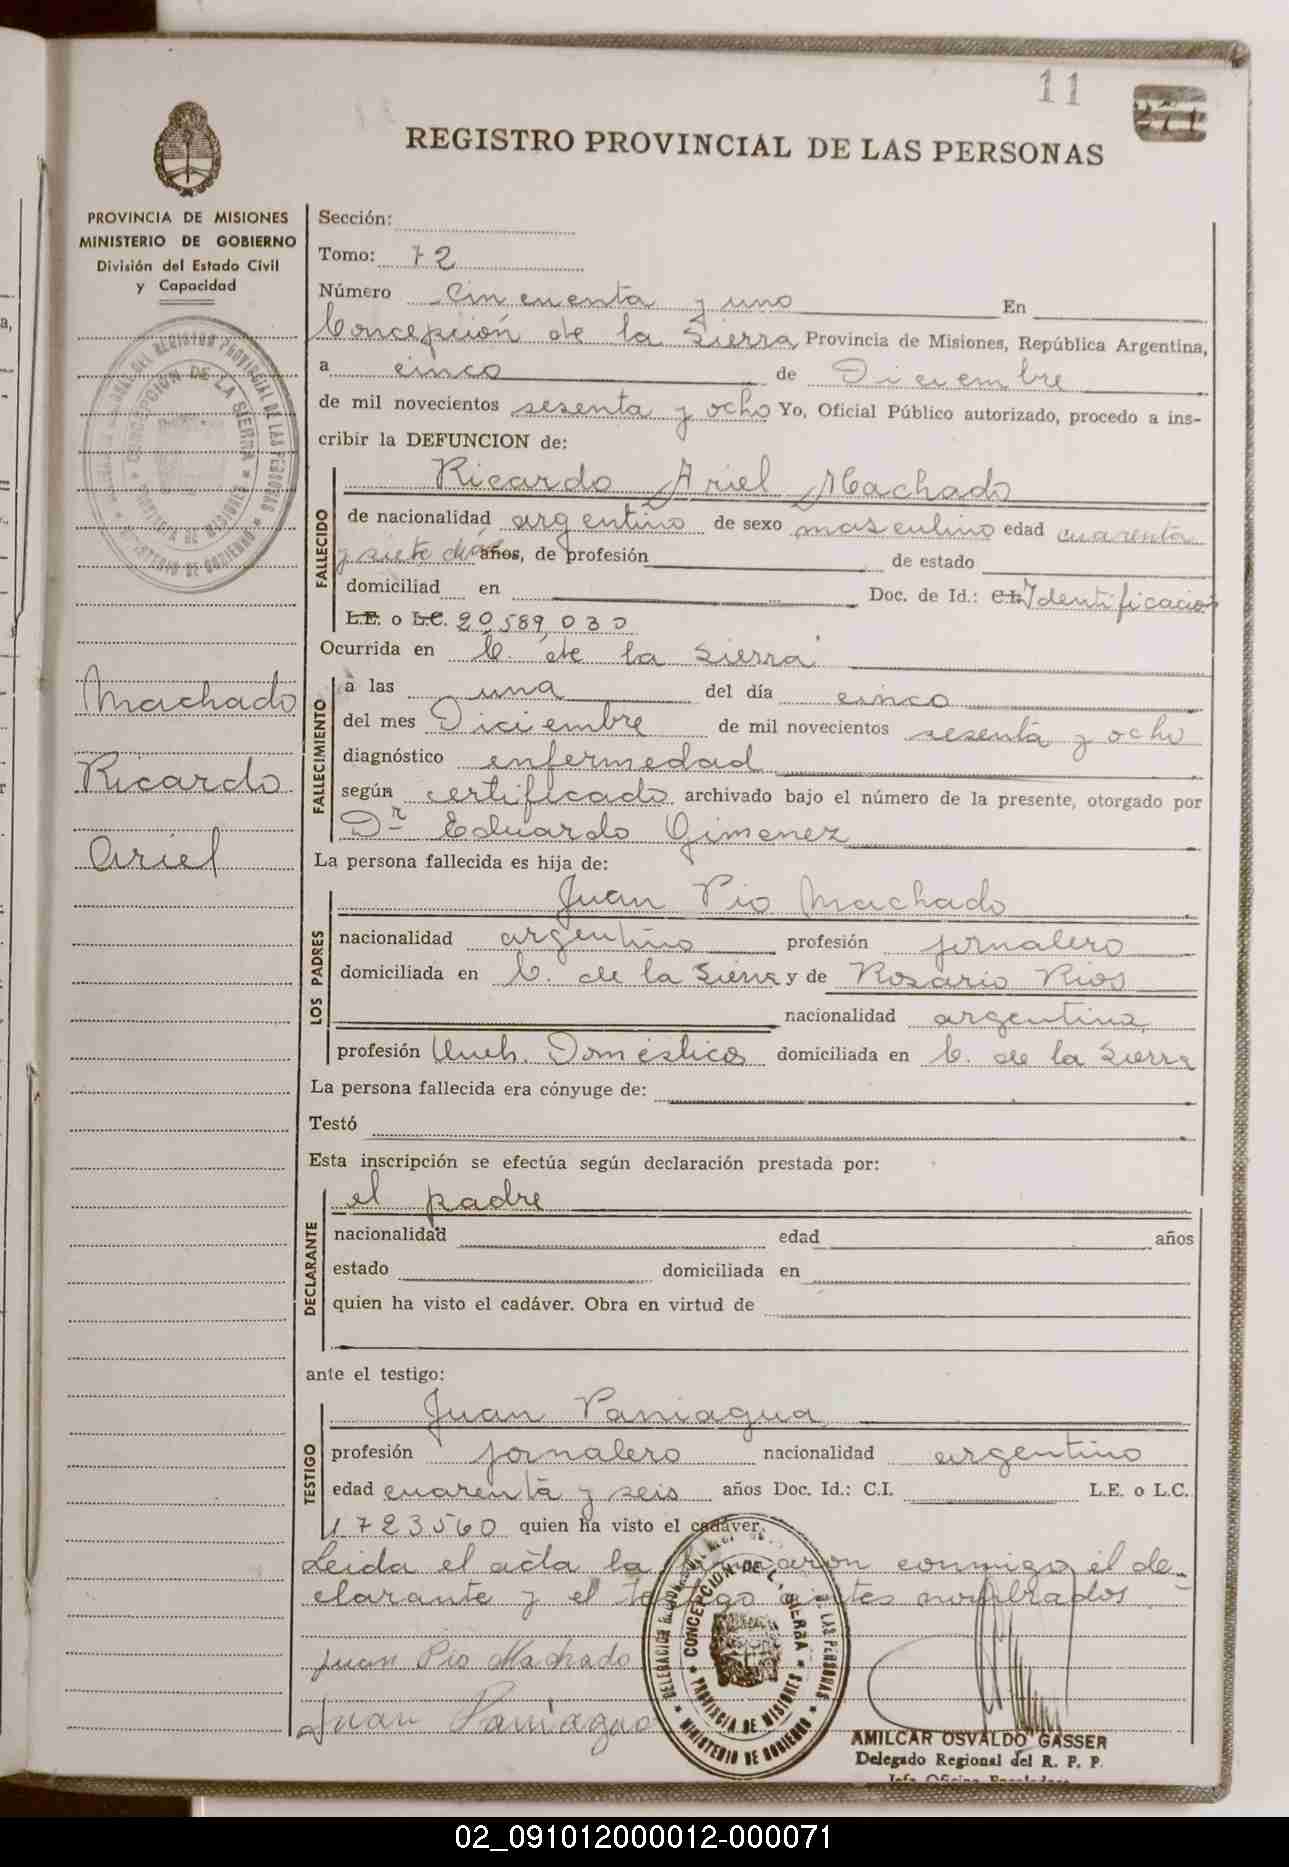 11
REGISTRO PROVINCIAL DE LAS PERSONAS
PROVINCIA DE MISIONES
MINISTERIO DE GOBIERNO
División del Estado Civil
y Capacidad
CONCEPCION DE LA SIERRA
PROVINCIA DE MISIONES
MINISTERIO DE GOBIERNO
Machado
Ricardo
Ariel
Sección:
Tomo: 72
Número Cincuenta y uno En
Concepción de la Sierra Provincia de Misiones, República Argentina,
a cinco de Diciembre
de mil novecientos sesenta y ocho Yo, Oficial Público autorizado, procedo a ins-
cribir la DEFUNCION de:
FALLECIDO
Ricardo Ariel Machado
de nacionalidad argentino de sexo masculino edad cuarenta
y siete días años, de profesión de estado
domiciliad en Doc. de Id.: C.I. Identificación
L.E. o L.C. 20.589.030
Ocurrida en C. de la Sierra
FALLECIMIENTO
a las una del día cinco
del mes Diciembre de mil novecientos sesenta y ocho
diagnóstico enfermedad
según certificado archivado bajo el número de la presente, otorgado por
Dr Eduardo Gimenez
La persona fallecida es hija de:
LOS PADRES
Juan Pio Machado
nacionalidad argentino profesión jornalero
domiciliada en C. de la Sierra y de Rosario Rios
nacionalidad argentina
profesión Queh. Domésticos domiciliada en C. de la Sierra
La persona fallecida era cónyuge de:
Testó
Esta inscripción se efectúa según declaración prestada por:
DECLARANTE
el padre
nacionalidad edad años
estado domiciliada en
quien ha visto el cadáver. Obra en virtud de
ante el testigo:
TESTIGO
Juan Paniagua
profesión jornalero nacionalidad argentino
edad cuarenta y seis años Doc. Id.: C.I. L.E. o L.C.
1723560 quien ha visto el cadáver.
Leida el acta la firmaron conmigo el de-
clarante y el testigo antes nombrados.
Juan Pio Machado
Juan Paniagua
CONCEPCION DE LA SIERRA
PROVINCIA DE MISIONES
MINISTERIO DE GOBIERNO
AMILCAR OSVALDO GASSER
Delegado Regional del R. P. P.
02_091012000012-000071